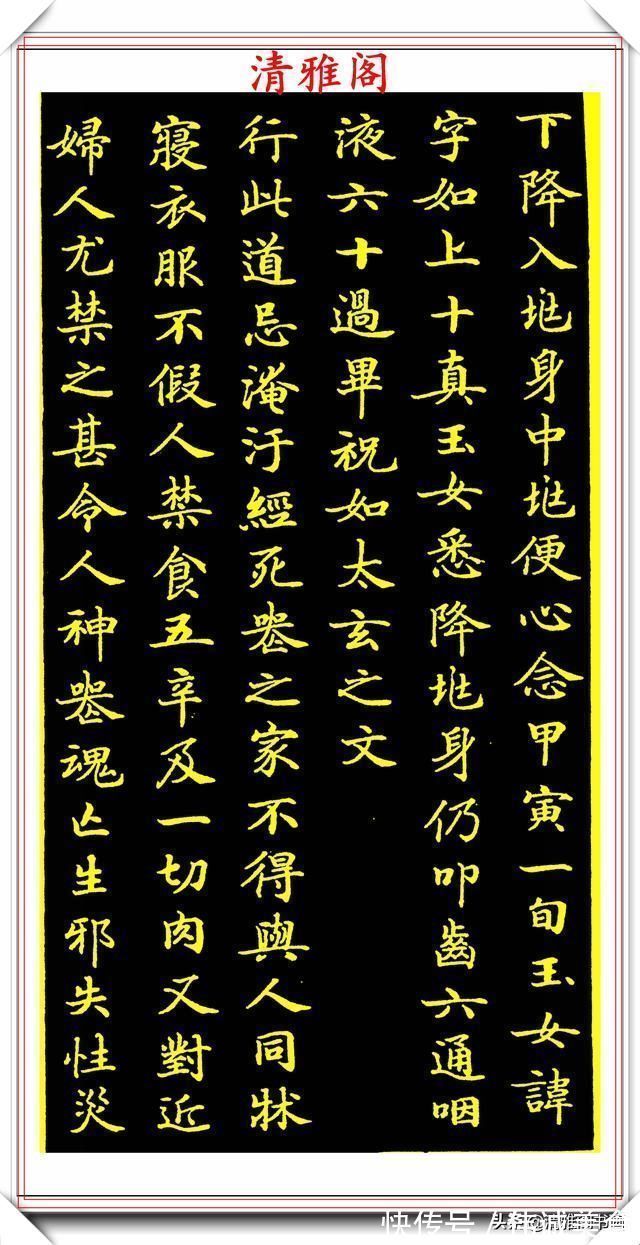 清雅阁
下降入兆身中兆便心念甲寅一旬玉女諱
字如上十真玉女悉降兆身仍叩齒六通咽
液六十過畢祝如太玄之文
行此道忌淹汙經死喪之家不得與人同牀
寢衣服不假人禁食五辛及一切肉又對近
婦人尤禁之甚令人神喪魂亡生邪失性災
快传号/